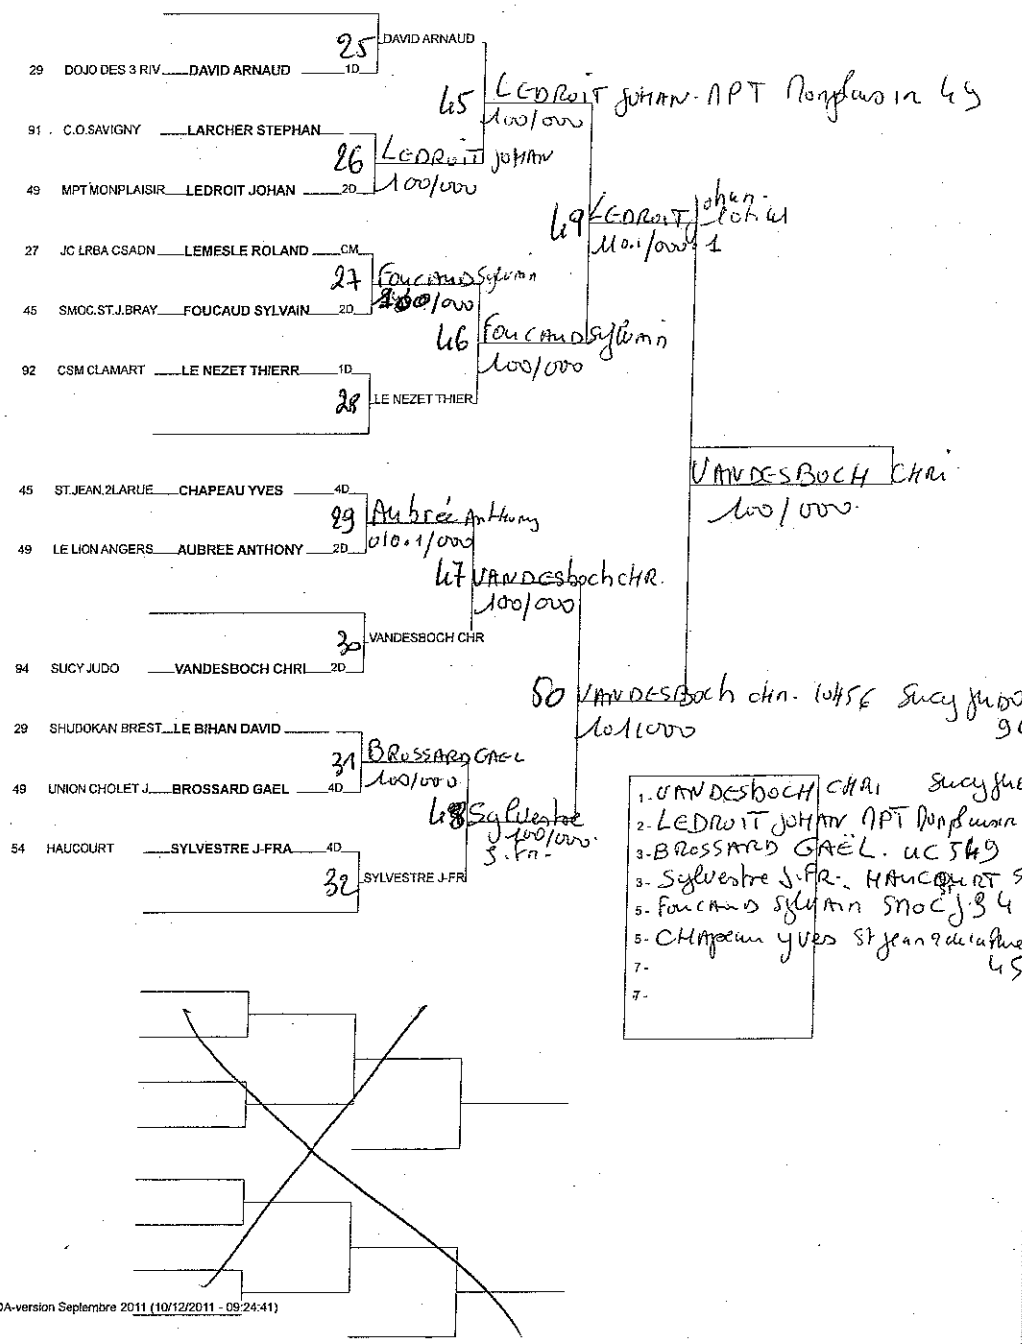 25 DAVID ARNAUD
29 DOJO DES 3 RIV DAVID ARNAUD 1D
45 LEDROIT JOHAN - MPT Monplaisir 49
100/000
91 C.O.SAVIGNY LARCHER STEPHAN
26 LEDROIT JOHAN
49 MPT MONPLAISIR LEDROIT JOHAN 2D 100/000
49 LEDROIT Johan -
110.1/000 1
27 JC LRBA CSADN LEMESLE ROLAND CM
27 FOUCAUD Sylvain
100/000
45 SMOC.ST.J.BRAY FOUCAUD SYLVAIN 2D
46 FOUCAUD Sylvain
100/000
92 CSM CLAMART LE NEZET THIERR 1D
28 LE NEZET THIER
VANDESBOCH CHRI
100/000.
45 ST.JEAN.2LARUE CHAPEAU YVES 4D
29 Aubrée Anthony
010.1/000
49 LE LION ANGERS AUBREE ANTHONY 2D
47 VANDESbochCHR.
100/000
30 VANDESBOCH CHR
94 SUCY JUDO VANDESBOCH CHRI 2D
50 VANDESBoch chr. Sucy JUDO
101/000
29 SHUDOKAN BREST LE BIHAN DAVID
31 BROSSARD GAEL
100/000
49 UNION CHOLET J BROSSARD GAEL 4D
48 Sylvestre
100/000.
J.Fr-
54 HAUCOURT SYLVESTRE J-FRA 4D
32 SYLVESTRE J-FR
1. VANDESBOCH CHRI Sucy
2- LEDROIT JOHAN MPT Monplaisir
3- BROSSARD GAËL. UCJ49
3- Sylvestre J.FR. HAUCOURT
5- FOUCAUD Sylvain SMOC
5- CHApeau yves St Jean 2 de la Rue
45
7-
7-
DA-version Septembre 2011 (10/12/2011 - 09:24:41)